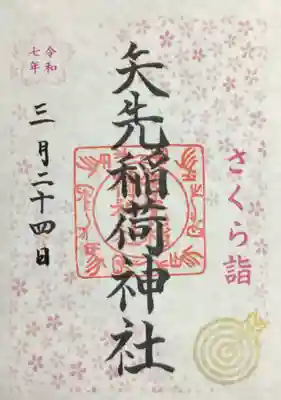 さくら詣
矢先稲荷神社
令和
七年
三月二十四日